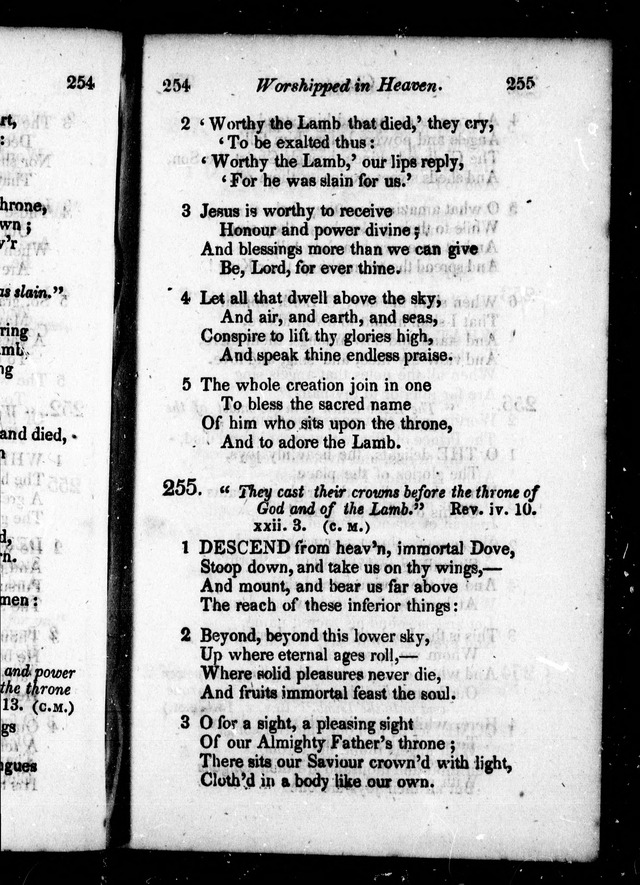 254
rt,
hrone,
wn ;
y'r
as slain."
ring
amb,
ng
and died,
n
d,
rn.
men :
and power
the throne
13. (C.M.)
gs
ngues
254 Worshipped in Heaven. 255
2 ‘ Worthy the Lamb that died,’ they cry,
‘ To be exalted thus :
‘ Worthy the Lamb,’ our lips reply,
‘ For he was slain for us.’
3 Jesus is worthy to receive
Honour and power divine ;
And blessings more than we can give
Be, Lord, for ever thine.
4 Let all that dwell above the sky,
And air, and earth, and seas,
Conspire to lift thy glories high,
And speak thine endless praise.
5 The whole creation join in one
To bless the sacred name
Of him who sits upon the throne,
And to adore the Lamb.
255. “ They cast their crowns before the throne of
God and of the Lamb.” Rev. iv. 10.
xxii. 3. (C. M.)
1 DESCEND from heav'n, immortal Dove,
Stoop down, and take us on thy wings,—
And mount, and bear us far above
The reach of these inferior things :
2 Beyond, beyond this lower sky,
Up where eternal ages roll,—
Where solid pleasures never die,
And fruits immortal feast the soul.
3 O for a sight, a pleasing sight
Of our Almighty Father's throne ;
There sits our Saviour crown'd with light,
Cloth'd in a body like our own.